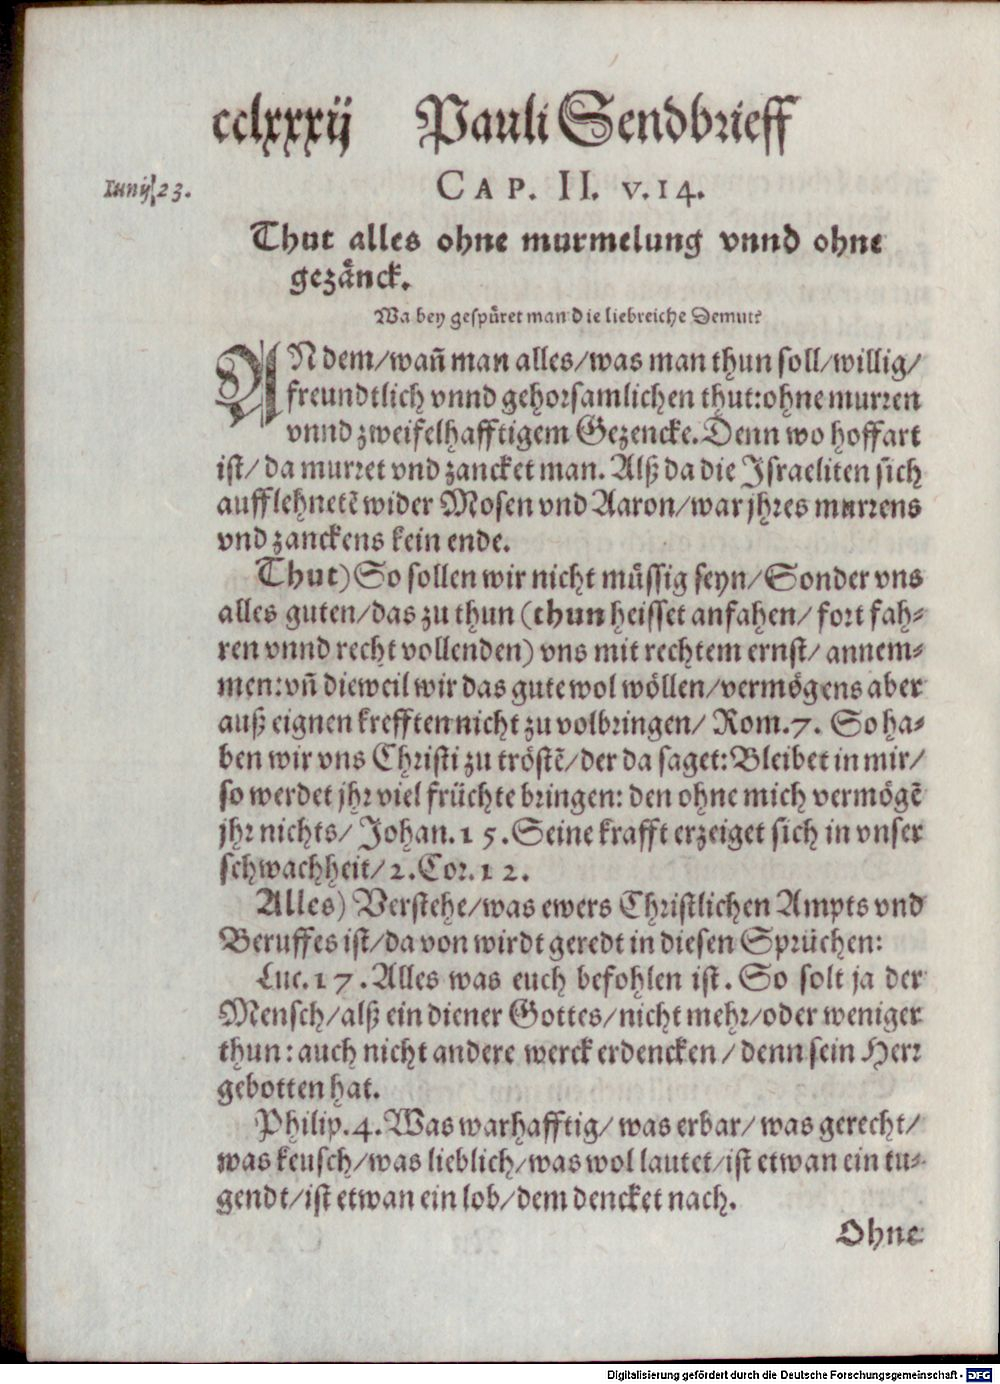 cclxxxij Pauli Sendbrieff
Iunij 23.
CAP. II. v. 14.
Thut alles ohne murmelung vnnd ohne
gezänck.
Wa bey gespüret man die liebreiche Demut?
AN dem/wañ man alles/was man thun soll/willig/
freundtlich vnnd gehorsamlichen thut: ohne murren
vnnd zweifelhafftigem Gezencke. Denn wo hoffart
ist/ da murret vnd zancket man. Alß da die Israeliten sich
aufflehnetẽ wider Mosen vnd Aaron/war jhres murrens
vnd zanckens kein ende.
Thut) So sollen wir nicht müssig seyn/Sonder vns
alles guten/das zu thun (thun heisset anfahen/ fort fah⸗
ren vnnd recht vollenden) vns mit rechtem ernst/ annem⸗
men: vñ dieweil wir das gute wol wöllen/vermögens aber
auß eignen krefften nicht zu volbringen/ Rom. 7. So ha⸗
ben wir vns Christi zu tröstẽ/der da saget: Bleibet in mir/
so werdet jhr viel früchte bringen: den ohne mich vermögẽ
jhr nichts/ Johan. 15. Seine krafft erzeiget sich in vnser
schwachheit/ 2. Cor. 12.
Alles) Verstehe/was ewers Christlichen Ampts vnd
Beruffes ist/da von wirdt geredt in diesen Sprüchen:
Luc. 17. Alles was euch befohlen ist. So solt ja der
Mensch/alß ein diener Gottes/nicht mehr/oder weniger
thun: auch nicht andere werck erdencken/denn sein Herr
gebotten hat.
Philip. 4. Was warhafftig/ was erbar/ was gerecht/
was keusch/was lieblich/was wol lautet/ist etwan ein tu⸗
gendt/ist etwan ein lob/dem dencket nach.
Ohne
Digitalisierung gefördert durch die Deutsche Forschungsgemeinschaft - DFG